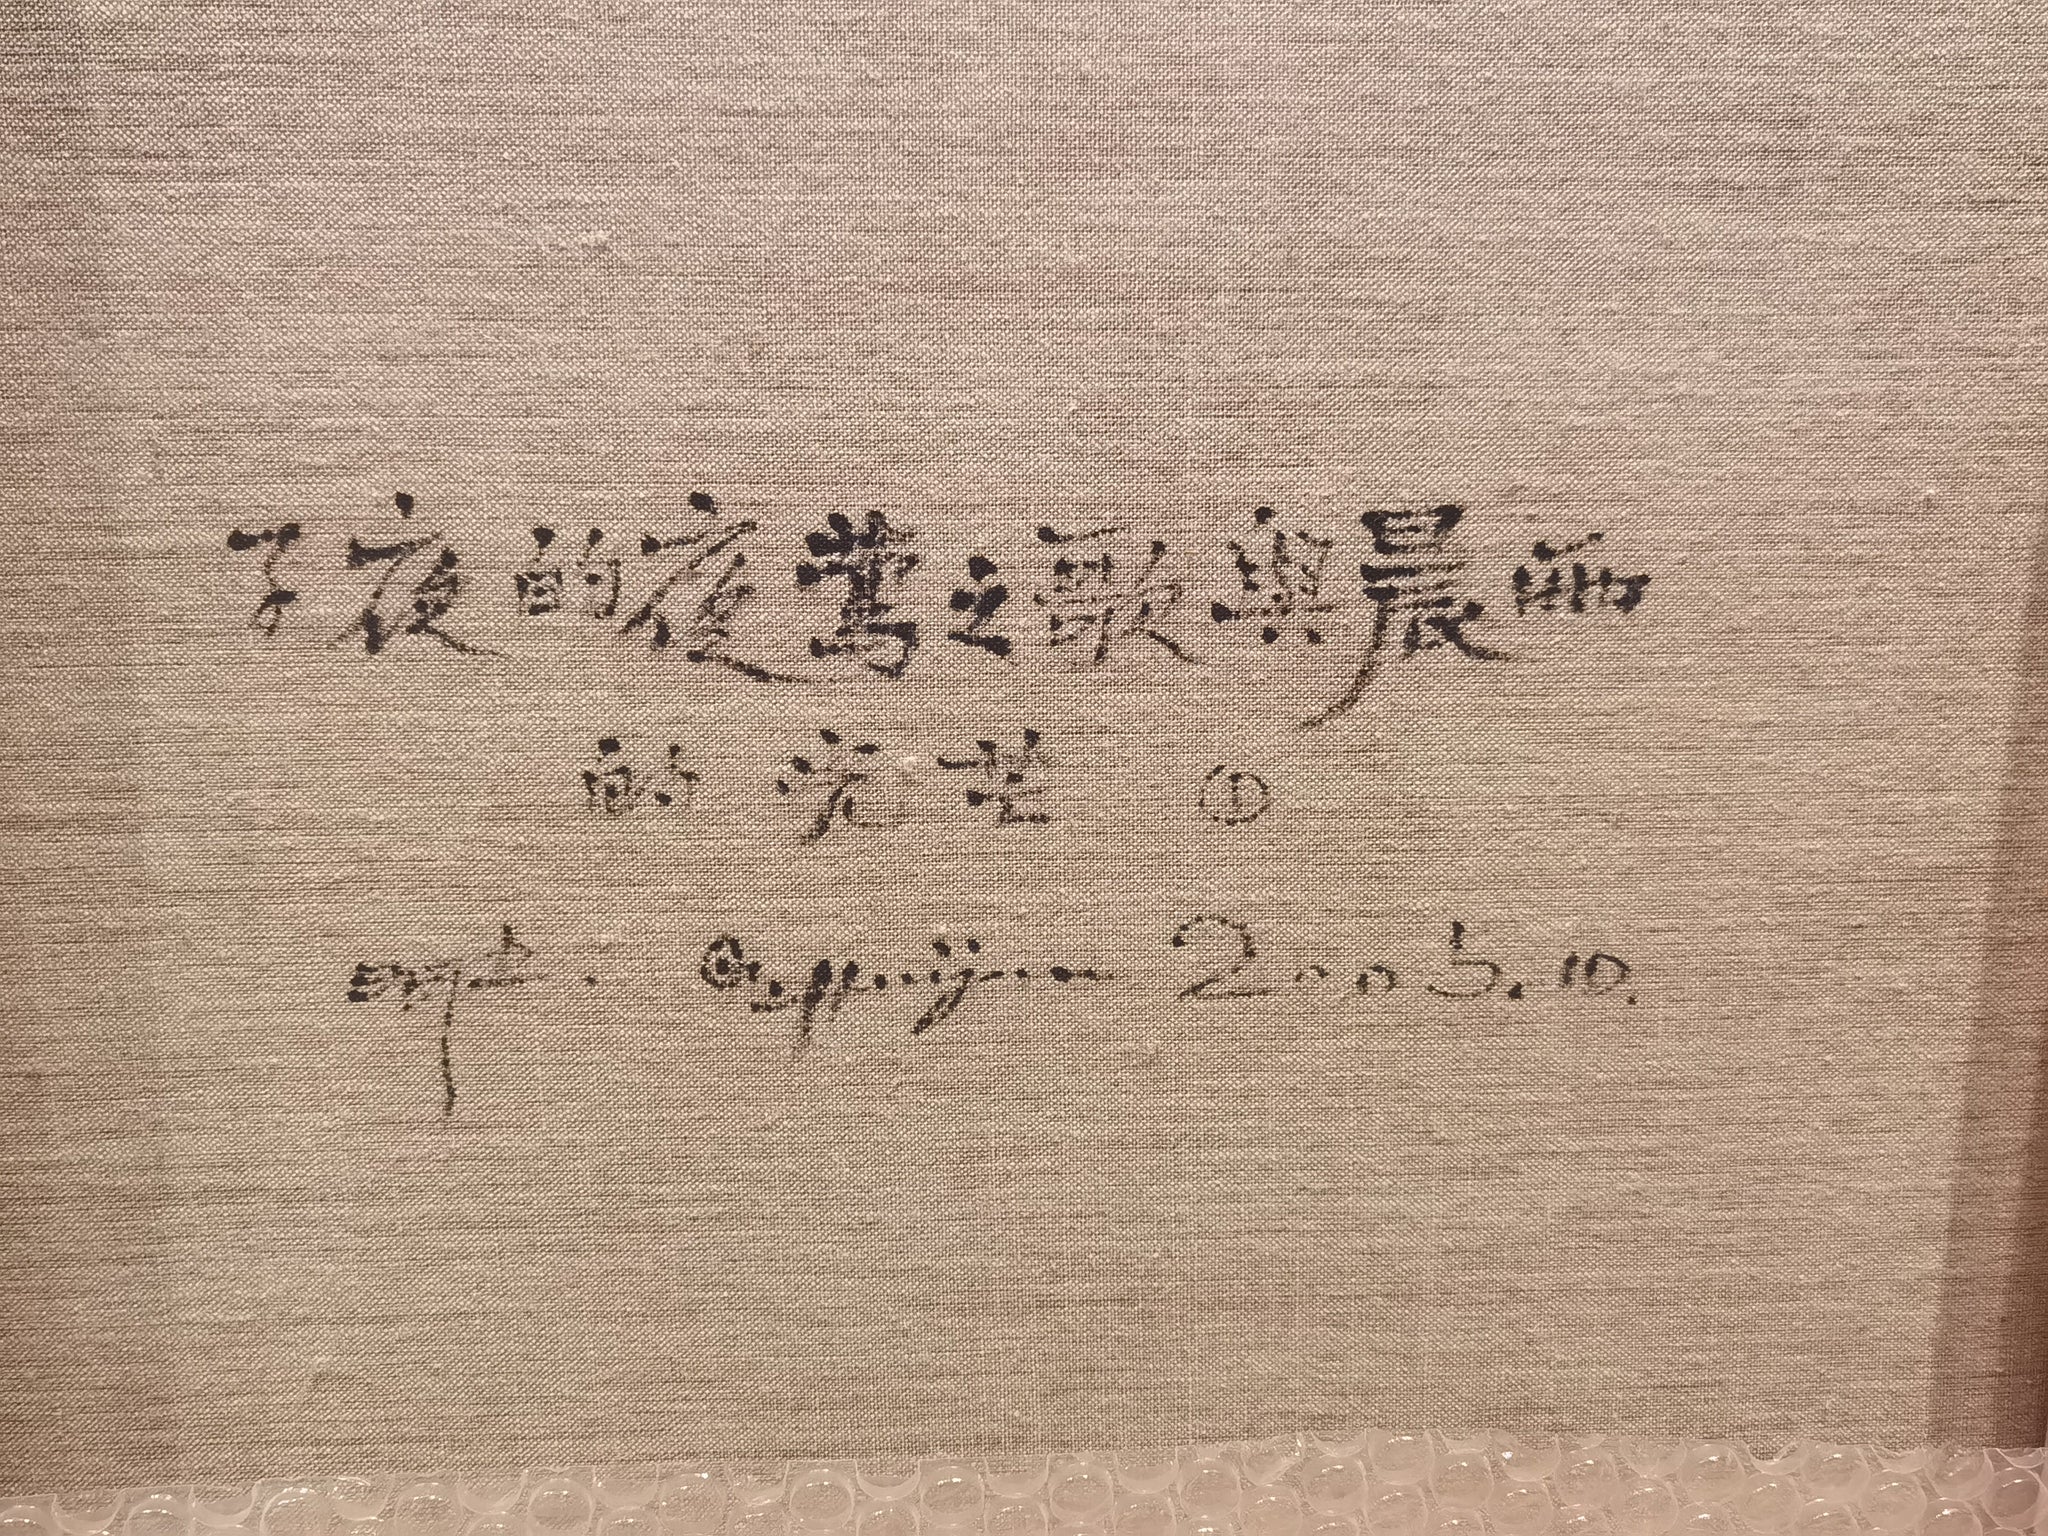 子夜的夜鶯之歌與晨雨
的光芒 ①
2005.10.